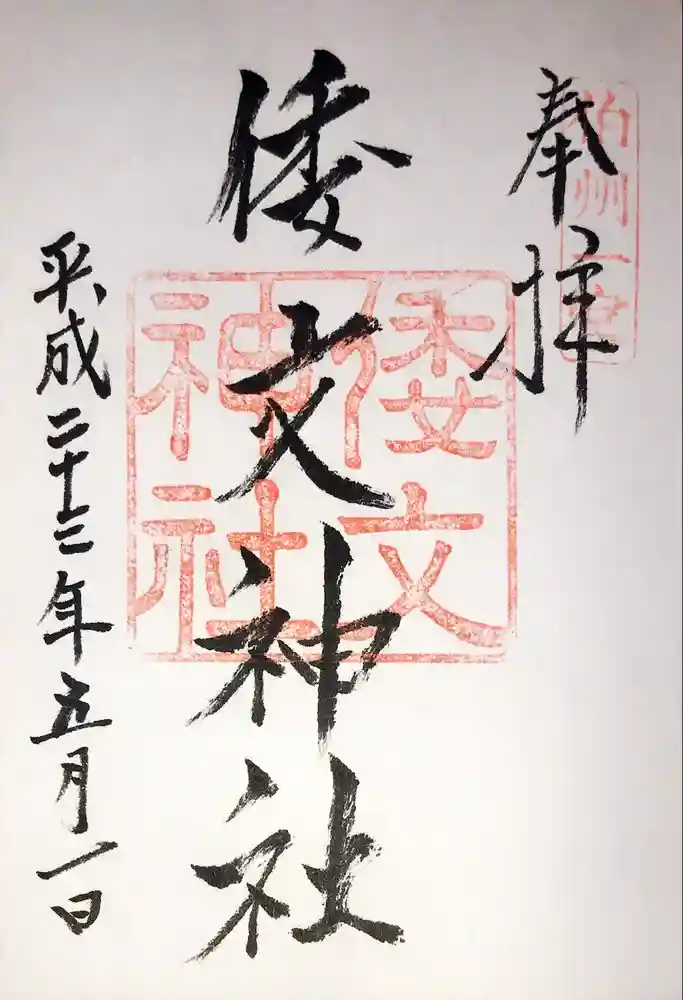 奉拝
伯州一宮
倭文神社
倭文
神社
平成二十三年五月一日